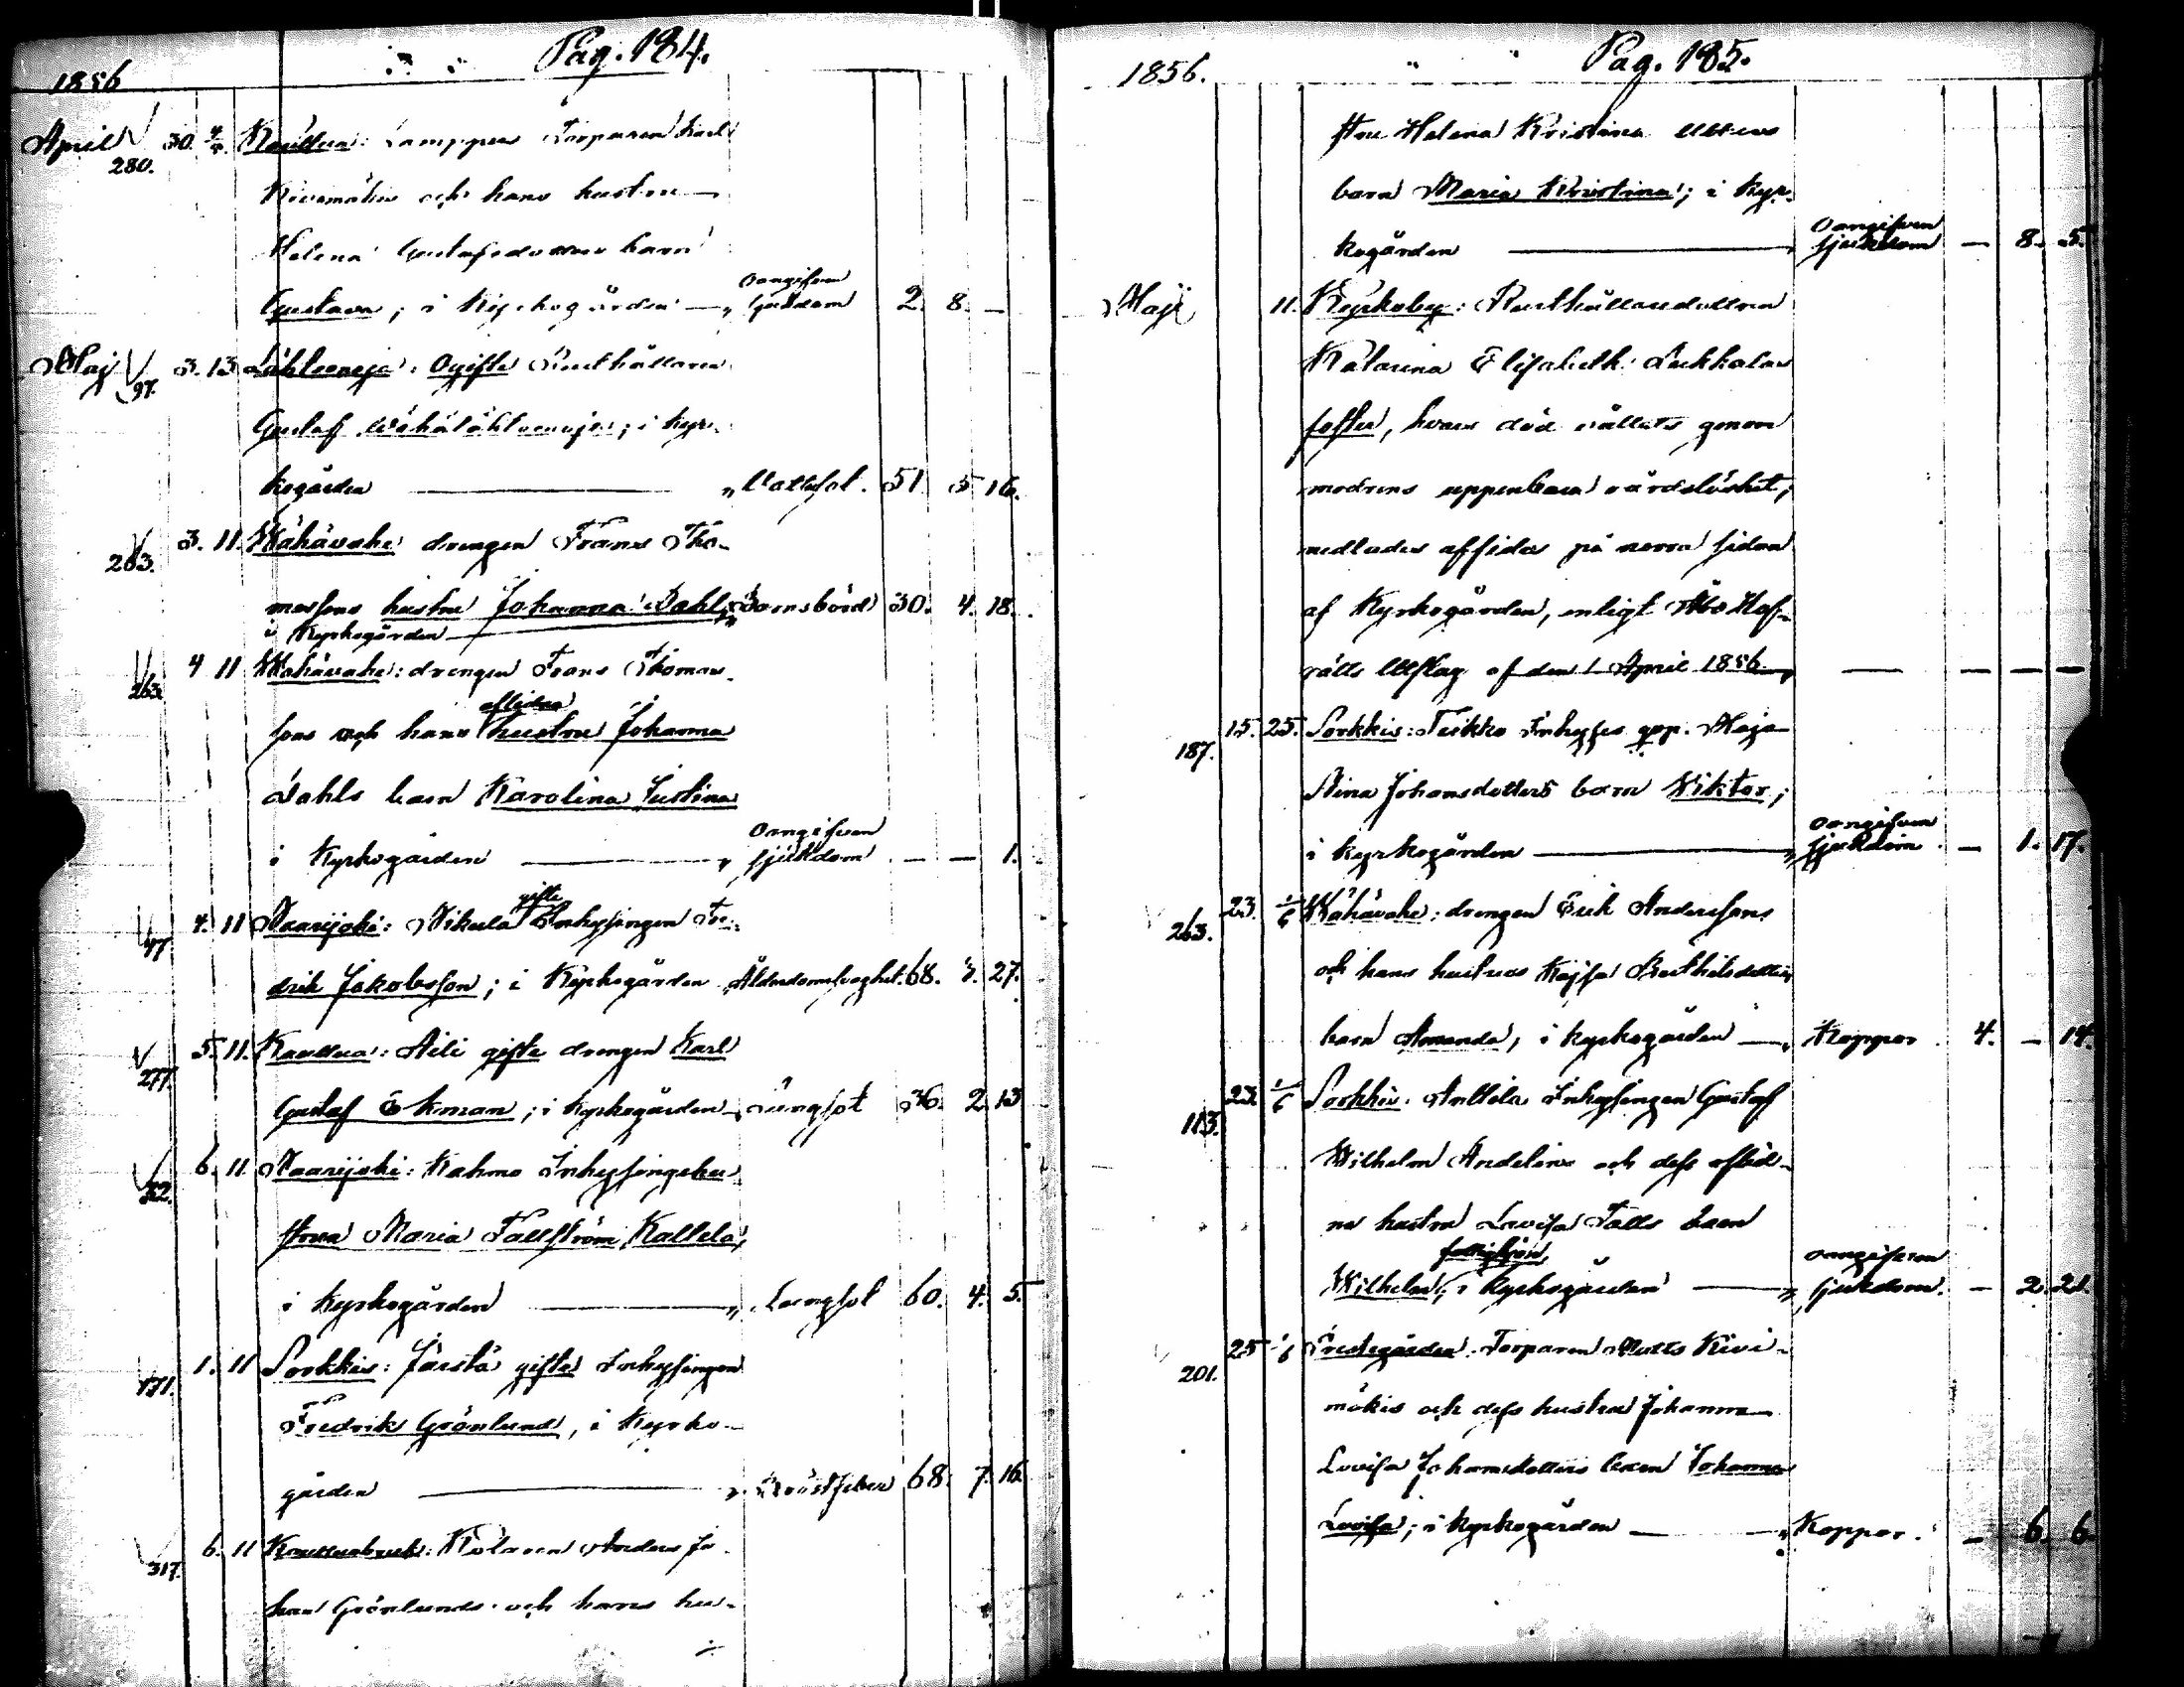 Pag. 184.
1856
April 280. 30. 4/5. Kauttua: Lamppus Torparen Karl
Kivimäkis och hans hustru
Helena Gustafsdotters barn
Gustava; i Kyrkogården — Oangifven sjukdom 2. 8. —
Maj 97. 3. 13 Ogifte Rusthållaren
Gustaf; i Kyr-
kogården — 51 5 16.
263. 3. 11. Wähävahe drengen Frans Tho-
massons hustru Johanna Dahl, Barnsbörd 30. 4. 18.
i Kyrkogården
263. 4 11 Wähävahe: drengen Frans Thomas-
sons och hans aflidna hustru Johanna
Dahls barn Karolina Justina
i Kyrkogården — Oangifven sjukdom — — 1.
47 4. 11 Naarijoki: Nikula gifte Inhysingen Fre-
drik Jakobsson; i Kyrkogården Ålderdomssvaghet. 68. 3. 27.
277. 5. 11. Kauttua: Aili gifte drengen Karl
Gustaf Ekman; i kyrkogården Lungsot 36. 2. 13
52. 6. 11. Naarijoki: Kahmo Inhysingshu-
strun Maria Fallström Kallela,
i Kyrkogården — Lungsot 60. 4. 5.
171. 1. 11 Sorkkis: Järstä gifte Inhysingen
Fredrik Grönlund, i Kyrko-
gården — Bröstfeber 68. 7. 16.
317. 6. 11 Kauttuabruk: Kolaren Anders Jo-
han Grönlunds och hans hu-
Pag. 185.
1856.
stru Helena Kristina
barn Maria Kristina; i Kyr-
kogården — Oangifven sjukdom — 8. 5.
Maji 11. Kyrkoby: Rusthållaredottren
Katarina Elisabeth Lukkalas
foster, hvars död vållats genom
modrens uppenbara vårdslöshet;
nedlades afsides på norra sidan
af Kyrkogården, enligt Åbo Hof-
rätts Utslag af den 1 April 1856. — — — —
187. 15. 25. Sorkkis: Teikko Inhyses qvp. Maja
Stina Johansdotters barn Wiktor;
i kyrkogården — Oangifven sjukdom. — 1. 17.
263. 23. 1/6 Wähävahe: drengen Erik Anderssons
och hans hustrus Kajsa Berthilsdotters
barn Amanda, i kyrkogården — Koppor 4. — 14.
113. 23. 1/6 Sorkkis: Anttila Inhysingen Gustaf
Wilhelm Andelins och dess aflid-
na hustru Lovisa Falls barn
Wilhelm, fattighjon, i Kyrkogården — oangifven sjukdom. — 2. 21.
201. 25 1/6 Torparen Matts Kivi-
mäkis och dess hustru Johanna
Lovisa Johansdotters barn Johanna
Lovisa; i kyrkogården — Koppor. — 6. 6